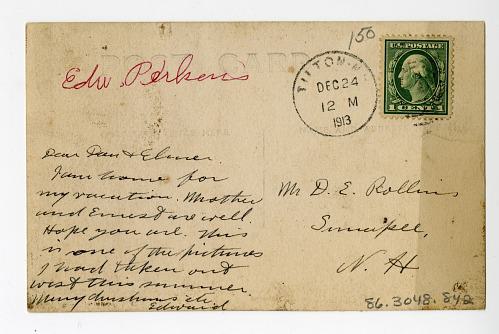 150
Edw. Perkins
U.S. POSTAGE
1 CENT 1
TILTON, N.H.
DEC 24
12 M
1913
Dear Dan & Elmer.
I am home for
my vacation. Mother
and Ernest are well.
Hope you are. This
is one of the pictures
I had taken out
west this summer.
Merry Christmas etc.
Edward
Mr D. E. Rollins
Sunapee,
N. H
86.3048.842